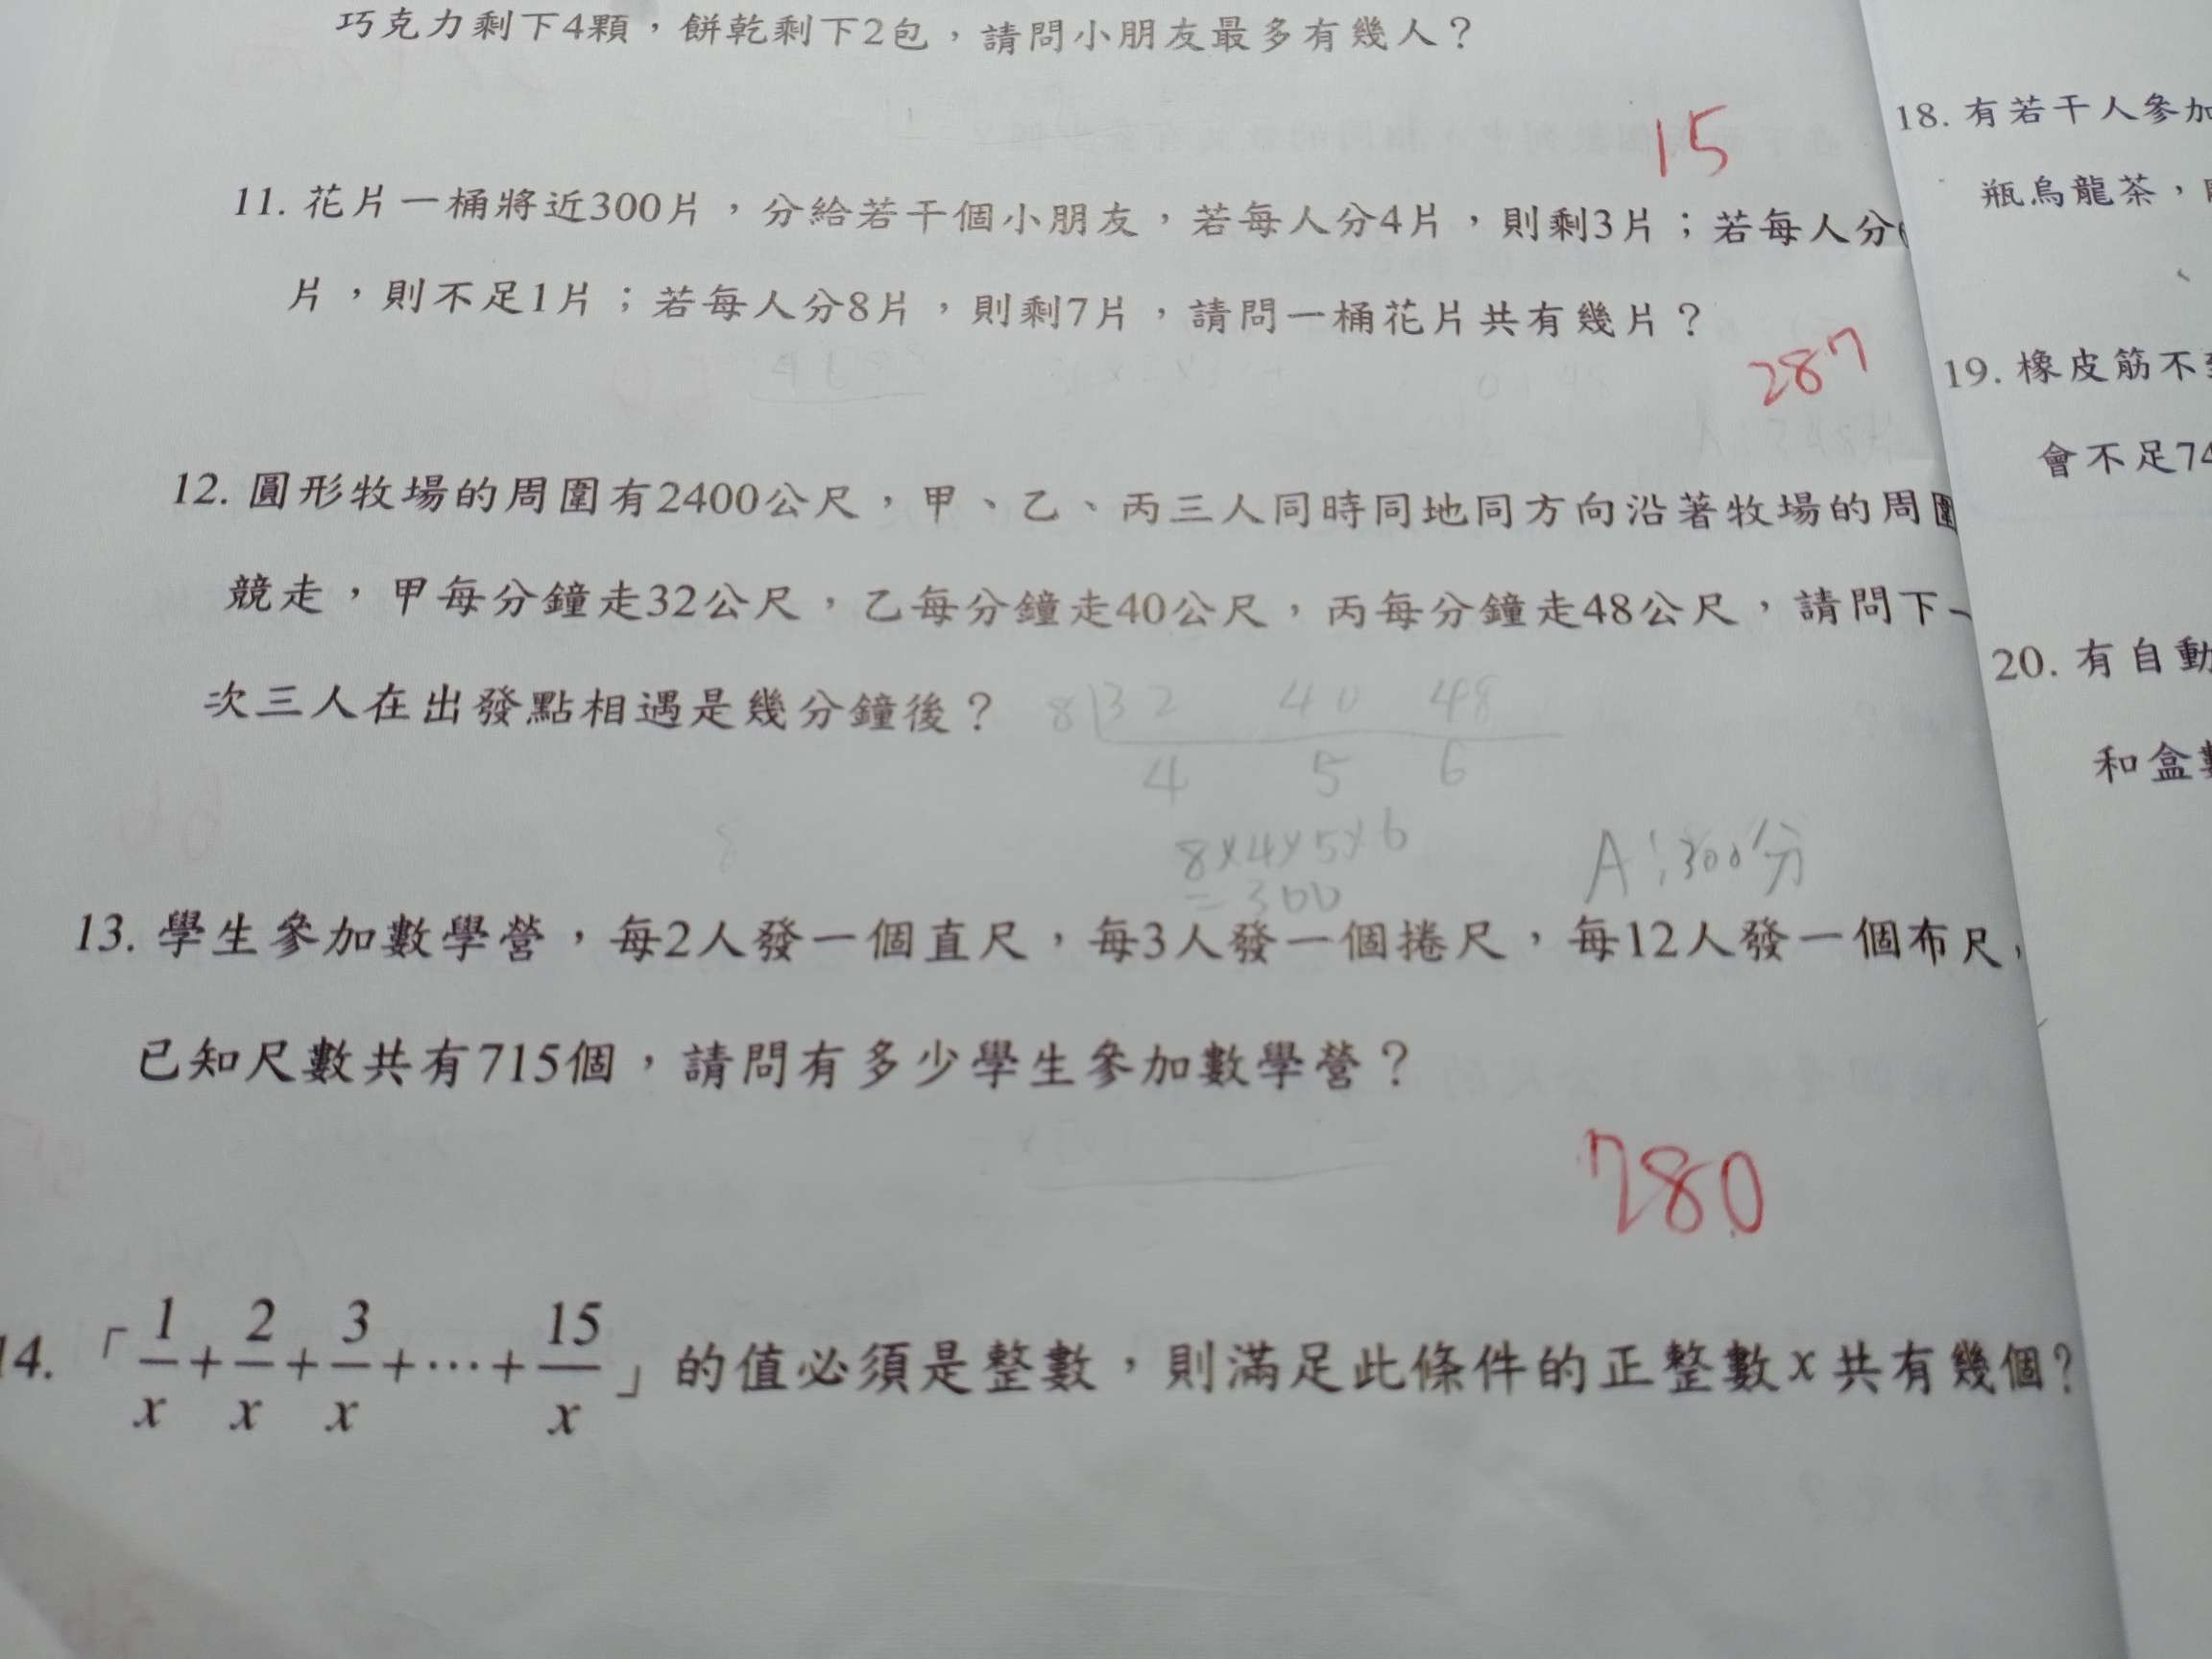 巧克力剩下4顆，餅乾剩下2包，請問小朋友最多有幾人？
15
11. 花片一桶將近300片，分給若干個小朋友，若每人分4片，則剩3片；若每人分
片，則不足1片；若每人分8片，則剩7片，請問一桶花片共有幾片？
287
12. 圓形牧場的周圍有2400公尺，甲、乙、丙三人同時同地同方向沿著牧場的周圍
競走，甲每分鐘走32公尺，乙每分鐘走40公尺，丙每分鐘走48公尺，請問下一
次三人在出發點相遇是幾分鐘後？
8 32 40 48
4 5 6
8×4×5×6
=300
A:300分
13. 學生參加數學營，每2人發一個直尺，每3人發一個捲尺，每12人發一個布尺，
已知尺數共有715個，請問有多少學生參加數學營？
780
14. 「1/x+2/x+3/x+⋯+15/x」的值必須是整數，則滿足此條件的正整數x共有幾個?
18. 有若干人參加
瓶烏龍茶，
19. 橡皮筋不
會不足74
20. 有自動
和盒